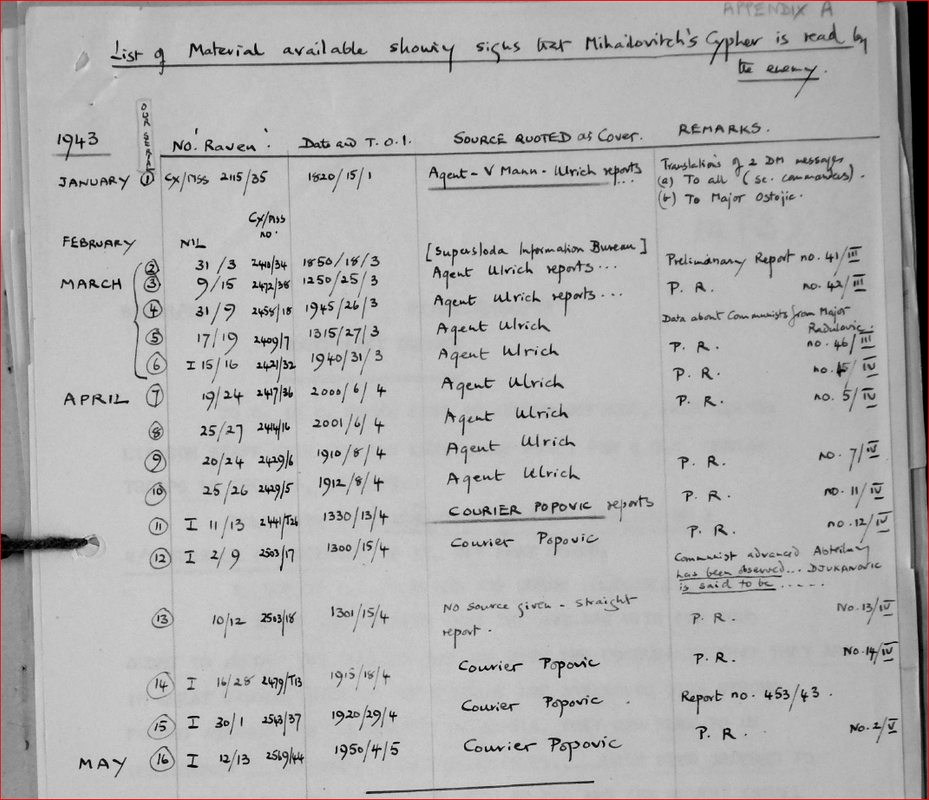 APPENDIX A
List of Material available showing signs that Mihailovitch's Cypher is read by
the enemy.
OUR SERIAL
1943 No. 'Raven'. Date and T.O.I. SOURCE QUOTED as Cover. REMARKS.
JANUARY 1 CX/MSS 2115/35 1820/15/1 Agent - V Mann - Ulrich reports... Translations of 2 DM messages
(a) To all (sc. commanders).
(b) To Major Ostojic.
CX/MSS
no.
FEBRUARY NIL
[Supersloda Information Bureau]
MARCH 2 31/3 2410/34 1850/18/3 Agent Ulrich reports... Preliminary Report no. 41/III
3 9/15 2472/38 1250/25/3 Agent Ulrich reports... P. R. no. 42/III
4 31/9 2458/18 1945/26/3 Agent Ulrich Data about Communists from Major
Radulovic.
5 17/19 2409/7 1315/27/3 Agent Ulrich P. R. no. 46/III
6 I 15/16 2421/32 1940/31/3 Agent Ulrich P. R. no. /IV
APRIL 7 19/24 2417/36 2000/6/4 Agent Ulrich P. R. no. 5/IV
8 25/27 2414/16 2001/6/4 Agent Ulrich
9 20/24 2429/6 1910/8/4 Agent Ulrich P. R. no. 7/IV
10 25/26 2429/5 1912/8/4 COURIER POPOVIC reports P. R. no. 11/IV
11 I 11/13 2441/T24 1330/13/4 Courier Popovic P. R. no. 12/IV
12 I 2/9 2503/17 1300/15/4 Communist advanced Abteilung
has been observed... DJUKANOVIC
is said to be .....
13 10/12 2503/18 1301/15/4 No source given - straight P. R. No. 13/IV
report.
14 I 16/28 2479/T13 1915/18/4 Courier Popovic P. R. No. 14/IV
15 I 30/1 2543/37 1920/29/4 Courier Popovic. Report no. 453/43.
MAY 16 I 12/13 2569/44 1950/4/5 Courier Popovic P. R. No. 2/V